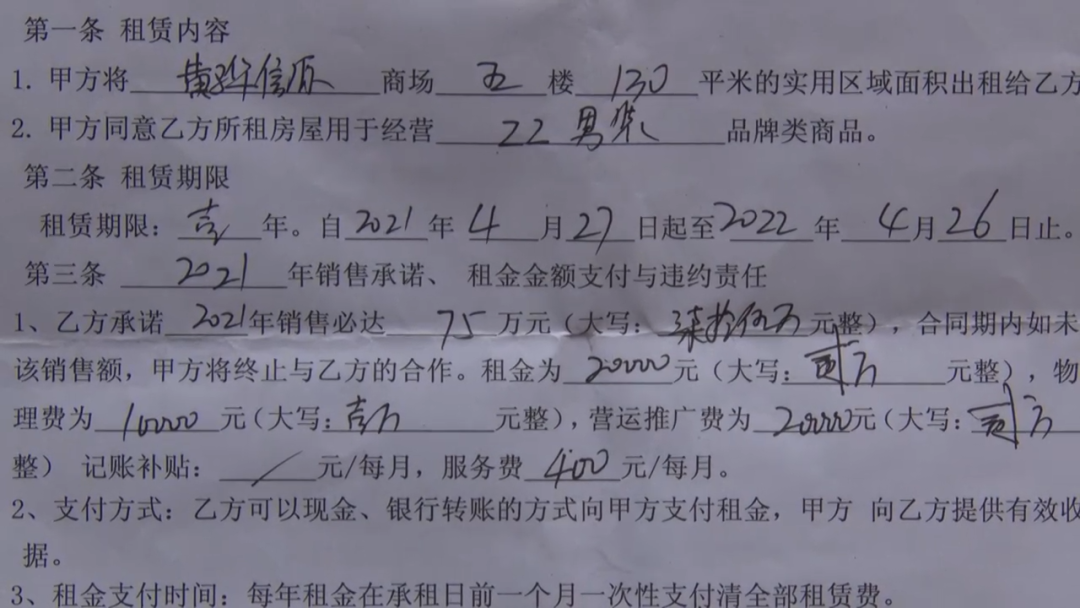 第一条 租赁内容
1. 甲方将 黄骅信原 商场 五 楼 130 平米的实用区域面积出租给乙方
2. 甲方同意乙方所租房屋用于经营 22 男装 品牌类商品。
第二条 租赁期限
租赁期限：壹年。自2021年 4 月27日起至2022 年 4月26日止。
第三条 2021 年销售承诺、 租金金额支付与违约责任
1、乙方承诺 2021年销售必达 75 万元（大写：柒拾伍万元整），合同期内如未
该销售额，甲方将终止与乙方的合作。租金为 20000元（大写：贰万 元整），物
理费为 10000 元（大写：壹万 元整），营运推广费为 20000元（大写：贰万
整） 记账补贴： / 元/每月，服务费 400 元/每月。
2、支付方式：乙方可以现金、银行转账的方式向甲方支付租金，甲方 向乙方提供有效收
据。
3、租金支付时间：每年租金在承租日前一个月一次性支付清全部租赁费。